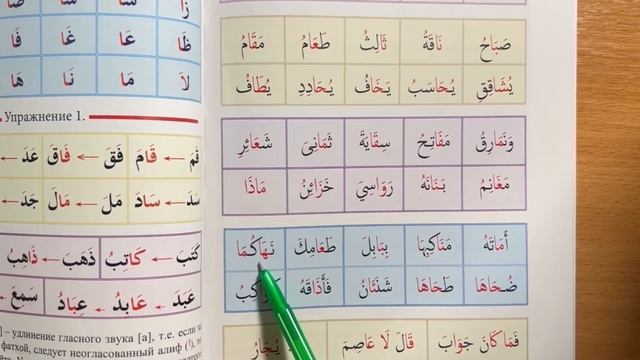 صَبَاحُ نَاقَةُ ثَالِثُ طَعَامُ مَقَامُ
يُشَاقِقِ يُحَاسَبُ يَخَافُ يُحَادِدِ يُطَافُ
وَنَمَارِقُ مَفَاتِحُ سِقَايَةَ ثَمَانِيَ شَعَائِرِ
مَغَانِمُ بَنَانَهُ رَوَاسِيَ خَزَائِنُ مَاذَا
أَمَاتَهُ مَنَاكِبِهَا بِبَابِلَ طَعَامِكَ نَهَاكُمَا
ضُحَاهَا طَحَاهَا شَنَئَانُ فَأَذَاقَهُ
فَمَا كَانَ جَوَابَ قَالَ لَا عَاصِمَ يُجَارُ
زَا
ظَا عَا غَا فَا
لَا مَا نَا هَا
Упражнение 1.
فَمَ ← قَامَ فَقَ ← فَاقَ عَدَ ←
سَدَ ← سَادَ مَلَ ← مَالَ جَدَ ←
كَتَبَ ← كَاتِبُ ذَهَبَ ← ذَاهِبُ
عَبَدَ ← عَابِدُ عِبَادُ سَمِعَ
– удлинение гласного звука [а], т.е. если за
фатхой, следует неогласованный алиф (ا), то